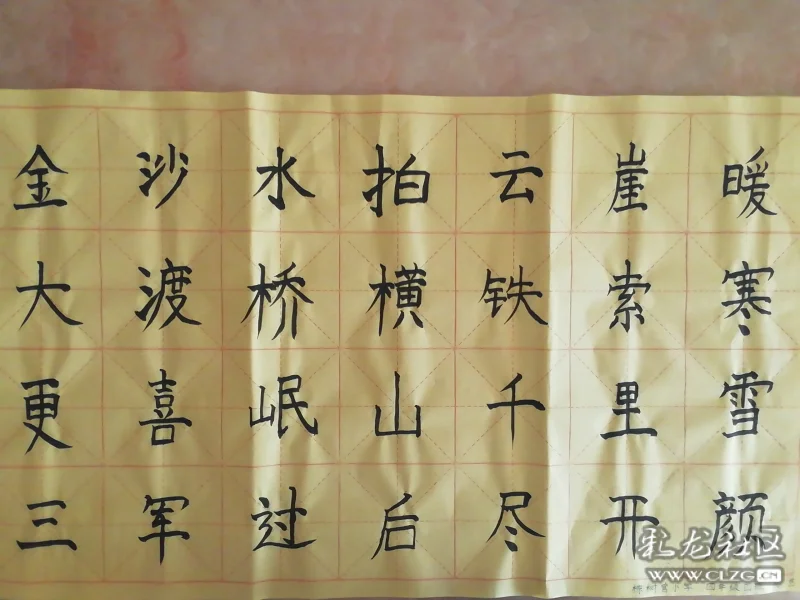 金沙水拍云崖暖
大渡桥横铁索寒
更喜岷山千里雪
三军过后尽开颜
小学 四年级
彩龙社区
WWW.CLZG.CN